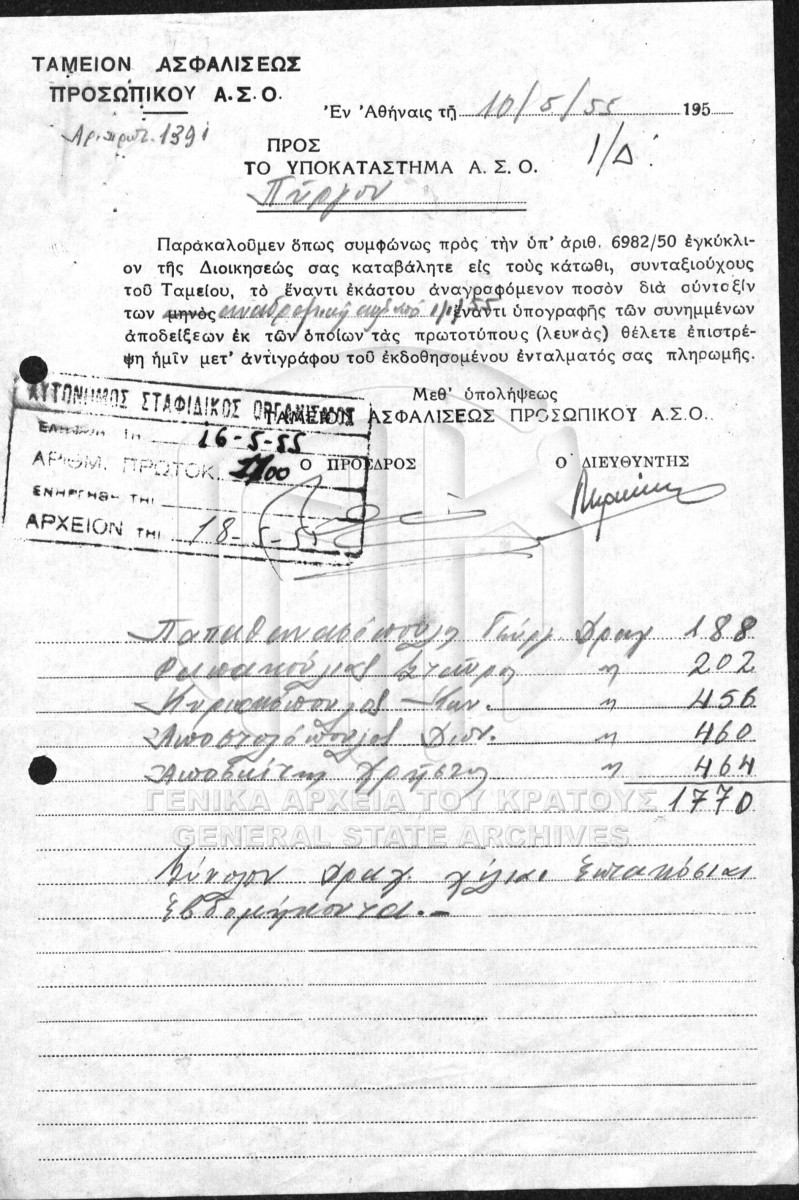 ΤΑΜΕΙΟΝ ΑΣΦΑΛΙΣΕΩΣ
ΠΡΟΣΩΠΙΚΟΥ Α.Σ.Ο.
Ἐν Ἀθήναις τῇ 10/5/55 195
Αριπρωτ. 1391
ΠΡΟΣ
ΤΟ ΥΠΟΚΑΤΑΣΤΗΜΑ Α.Σ.Ο.
1/Δ
Πύργου
Παρακαλοῦμεν ὅπως συμφώνως πρὸς τὴν ὑπ' ἀριθ. 6982/50 ἐγκύκλι-
ον τῆς Διοικησεώς σας καταβάλητε εἰς τοὺς κάτωθι, συνταξιούχους
τοῦ Ταμείου, τὸ ἔναντι ἑκάστου ἀναγραφόμενον ποσὸν διὰ σύνταξίν
των μηνὸς ἀπὸ 1/1/55 ἔναντι ὑπογραφῆς τῶν συνημμένων
ἀποδείξεων ἐκ τῶν ὁποίων τὰς πρωτοτύπους (λευκὰς) θέλετε ἐπιστρέ-
ψῃ ἡμῖν μετ' ἀντιγράφου τοῦ ἐκδοθησομένου ἐντάλματός σας πληρωμῆς.
Μεθ' ὑπολήψεως
ΤΑΜΕΙΟΝ ΑΣΦΑΛΙΣΕΩΣ ΠΡΟΣΩΠΙΚΟΥ Α.Σ.Ο.
ΑΥΤΟΝΟΜΟΣ ΣΤΑΦΙΔΙΚΟΣ ΟΡΓΑΝΙΣΜΟΣ
ΕΛΗΦΘΗ ΤΗ 16-5-55
ΑΡΙΘΜ. ΠΡΩΤΟΚ.
Ο ΠΡΟΕΔΡΟΣ Ο ΔΙΕΥΘΥΝΤΗΣ
ΕΝΗΡΓΗΘΗ ΤΗΙ
ΑΡΧΕΙΟΝ ΤΗΙ 18-5-55
Παπαθανασόπουλος Γεώργ Δραχ 188
Σταῦρος " 202
Κυριακόπουλος Κων. " 456
Ἀποστολόπουλος Διον. " 460
Χρῆστος " 464
1770
ΓΕΝΙΚΑ ΑΡΧΕΙΑ ΤΟΥ ΚΡΑΤΟΥΣ
GENERAL STATE ARCHIVES
Σύνολον Δραχ χίλιαι Ἑπτακόσιαι
Ἑβδομήκοντα.-